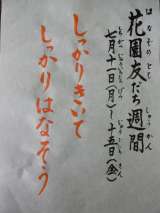 はなぞのとも しゅうかん
花園友だち週間
七月十一日(月)~十五日(金)
しっかりきいて
しっかりはなそう